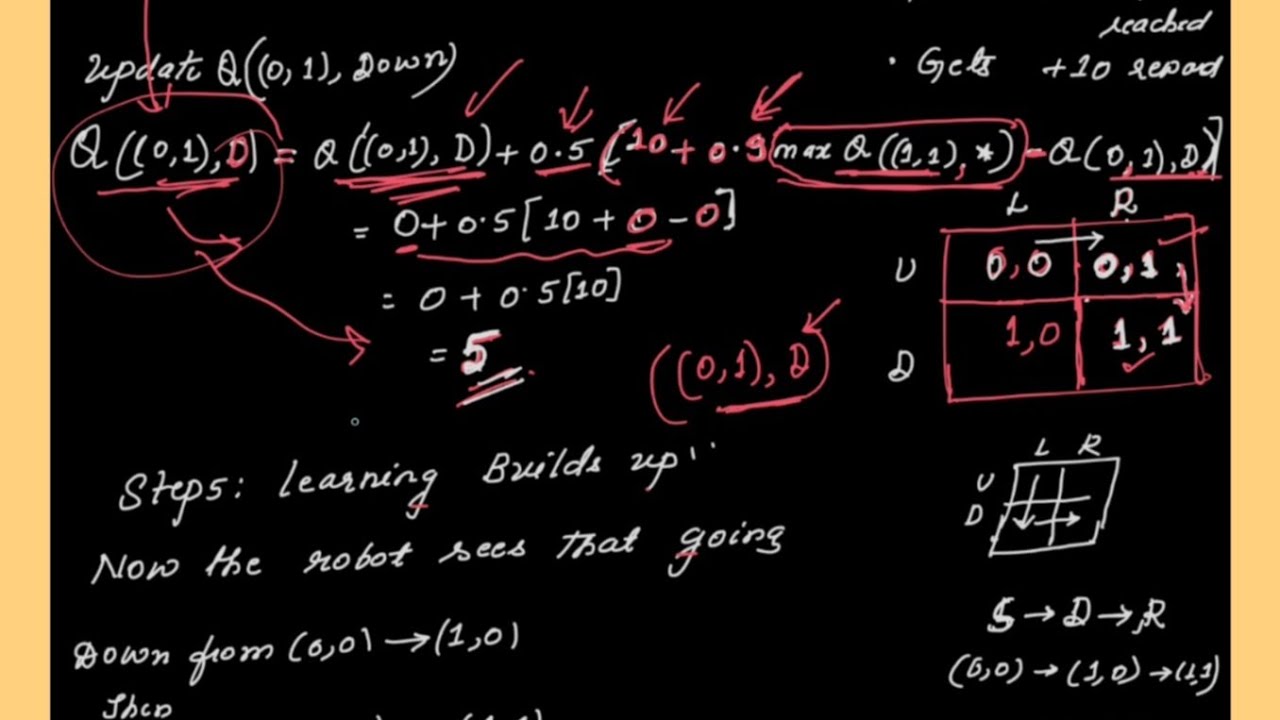 reached
update Q((0,1), Down)
· Gets +10 reward
Q((0,1), D) = Q((0,1), D) + 0.5 [10 + 0.9 max Q((1,1), *) - Q(0,1), D)]
= 0 + 0.5 [10 + 0 - 0]
= 0 + 0.5 [10]
= 5
((0,1), D)
L R
U 0,0 0,1
D 1,0 1,1
Step5: Learning Builds up
L R
U
D
Now the robot sees that going
S → D → R
Down from (0,0) → (1,0)
(0,0) → (1,0) → (1,1)
Then